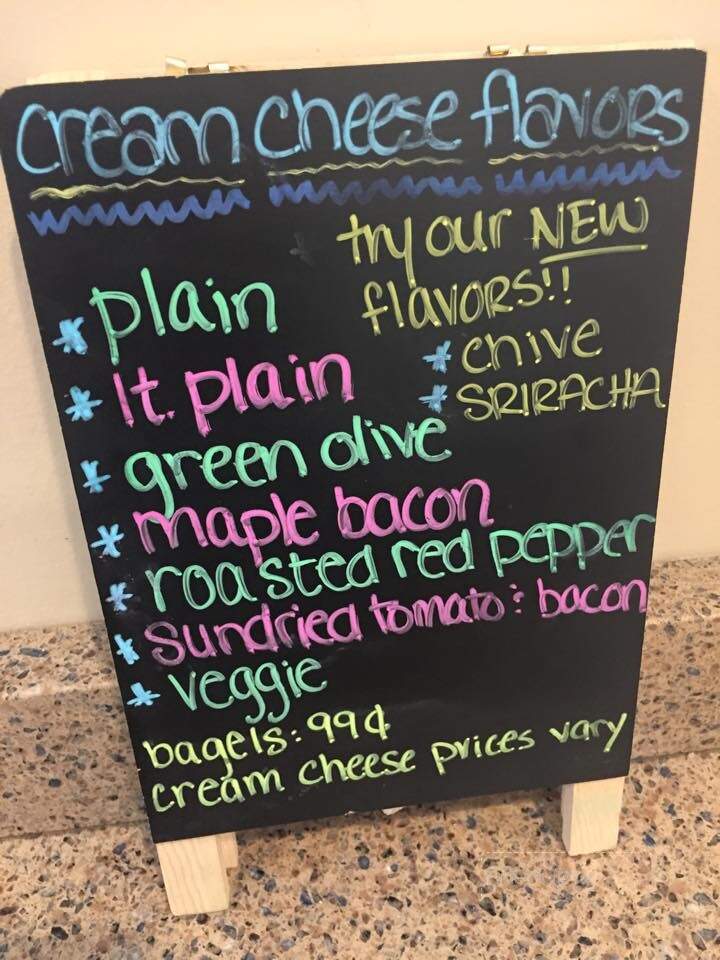 cream cheese flavors
try our NEW
flavors!!
* chive
* SRIRACHA
* plain
* lt. plain
* green olive
* maple bacon
* roasted red pepper
* sundried tomato & bacon
* veggie
bagels: 99¢
cream cheese prices vary